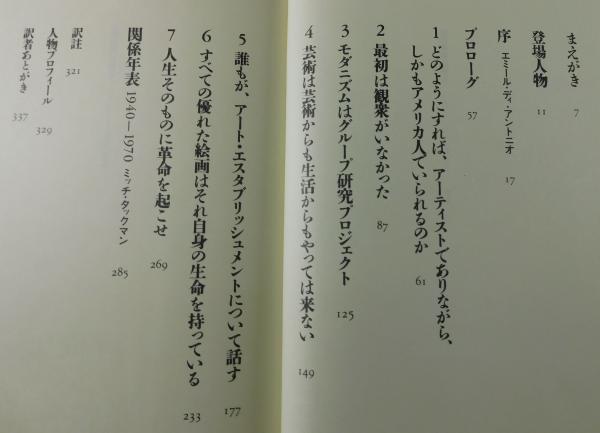 まえがき 7
登場人物 11
序 エミール・ディ・アントニオ 17
プロローグ 57
1 どのようにすれば、アーティストでありながら、
しかもアメリカ人でいられるのか 61
2 最初は観衆がいなかった 87
3 モダニズムはグループ研究プロジェクト 125
4 芸術は芸術からも生活からもやっては来ない 149
5 誰もが、アート・エスタブリッシュメントについて話す 177
6 すべての優れた絵画はそれ自身の生命を持っている 233
7 人生そのものに革命を起こせ 269
関係年表 1940―1970 ミッチ・タックマン 285
訳註 321
人物プロフィール 329
訳者あとがき 337